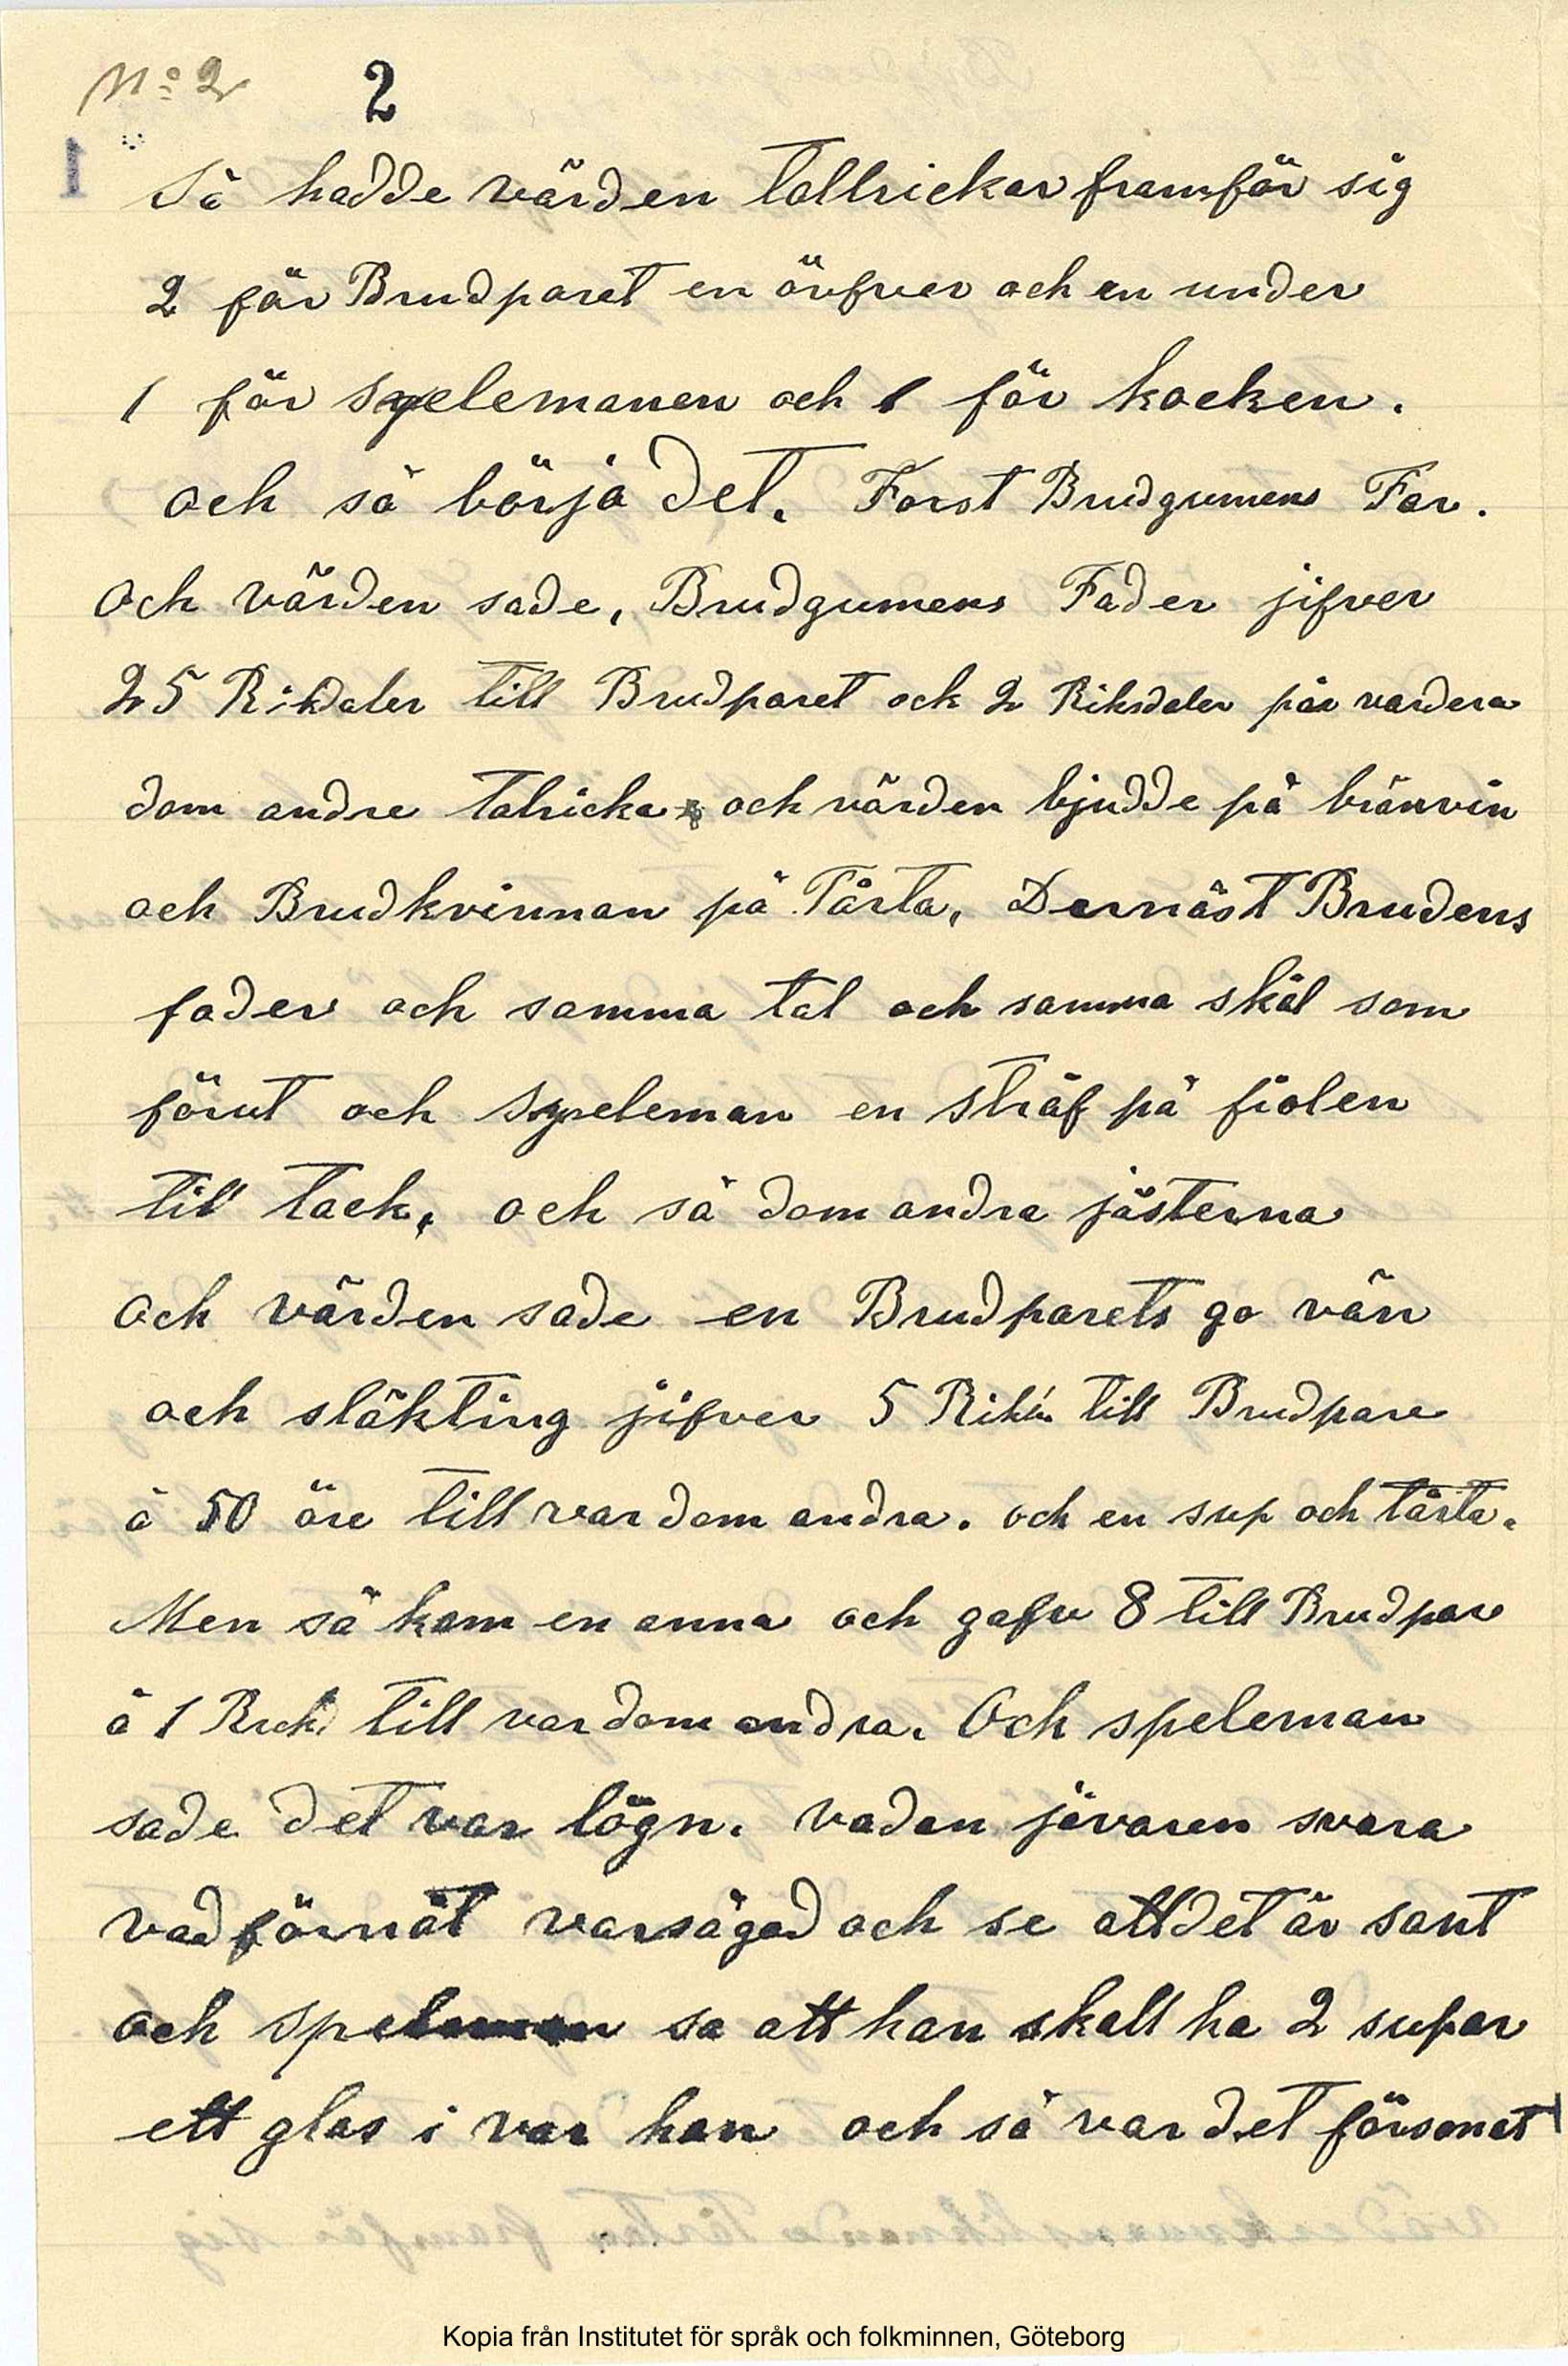 No 2 2
Så hadde värden tallrickar framför sig
2 för Brudparet en öfver och en under
1 för Spelemanen och 1 för kocken.
och så börja det. Forst Brudgumens Far.
och värden sade, Brudgumens Fader jifver
25 Rikdaler till Brudparet ock 2 Riksdaler på vardera
dom andre talricka och värden bjudde på bränvin
och Brudkvinnan på Tårta, Dernäst Brudens
fader och samma tal och samma skål som
förut och Speleman en stråf på fiolen
till tack, och så dom andra jästerna
och värden sade en Brudparets go vän
och släkting jifver 5 Rik till Brudpare
å 50 öre till var dom andra. och en sup och tårta.
Men så kom en anna och gafv 8 till Brudpar
å 1 till var dom andra. Och speleman
sade det var lögn. vadan jivaren svara
vad förnåt varsågod och se att det är sant
och spelman sa att han skall ha 2 supar
ett glas i var han och så var det försonat
1
Kopia från Institutet för språk och folkminnen, Göteborg